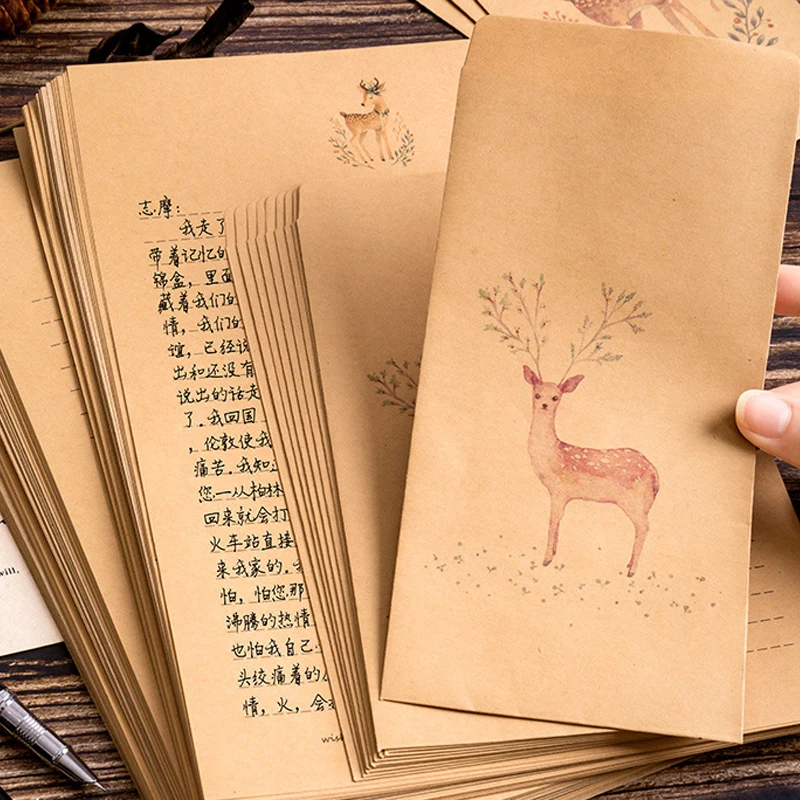 志摩：
我走了
带着记忆的
锦盒，里面
藏着我们的
情，我们的
谊，已经说
出和还没有
说出的话走
了．我回国
，伦敦使我
痛苦．我知
您一从柏林
回来就会打
火车站直接
来我家的．
怕，怕您那
沸腾的热情
也怕我自己
头绞痛着的
情，火，会
will,